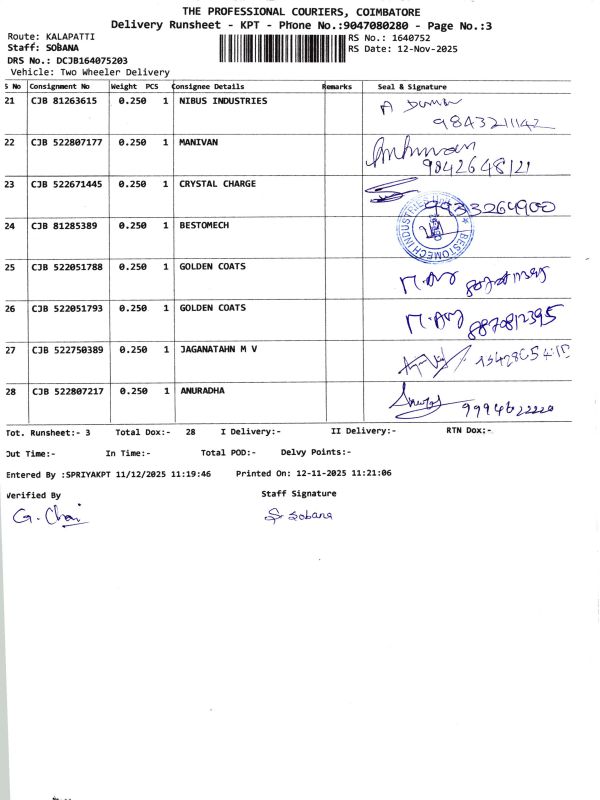 THE PROFESSIONAL COURIERS, COIMBATORE
Delivery Runsheet - KPT - Phone No.:9047080280 - Page No.:3
Route: KALAPATTI RS No.: 1640752
Staff: SOBANA RS Date: 12-Nov-2025
DRS No.: DCJB164075203
Vehicle: Two Wheeler Delivery
S No Consignment No Weight PCS Consignee Details Remarks Seal & Signature
21 CJB 81263615 0.250 1 NIBUS INDUSTRIES
9843211142
22 CJB 522807177 0.250 1 MANIVAN
9842648121
23 CJB 522671445 0.250 1 CRYSTAL CHARGE
24 CJB 81285389 0.250 1 BESTOMECH BESTOMECH INDUSTRIES
25 CJB 522051788 0.250 1 GOLDEN COATS
26 CJB 522051793 0.250 1 GOLDEN COATS
8870812395
27 CJB 522750389 0.250 1 JAGANATAHN M V
28 CJB 522807217 0.250 1 ANURADHA
9994622220
Tot. Runsheet:- 3 Total Dox:- 28 I Delivery:- II Delivery:- RTN Dox:-
Out Time:- In Time:- Total POD:- Delvy Points:-
Entered By :SPRIYAKPT 11/12/2025 11:19:46 Printed On: 12-11-2025 11:21:06
Verified By Staff Signature
S Sobana